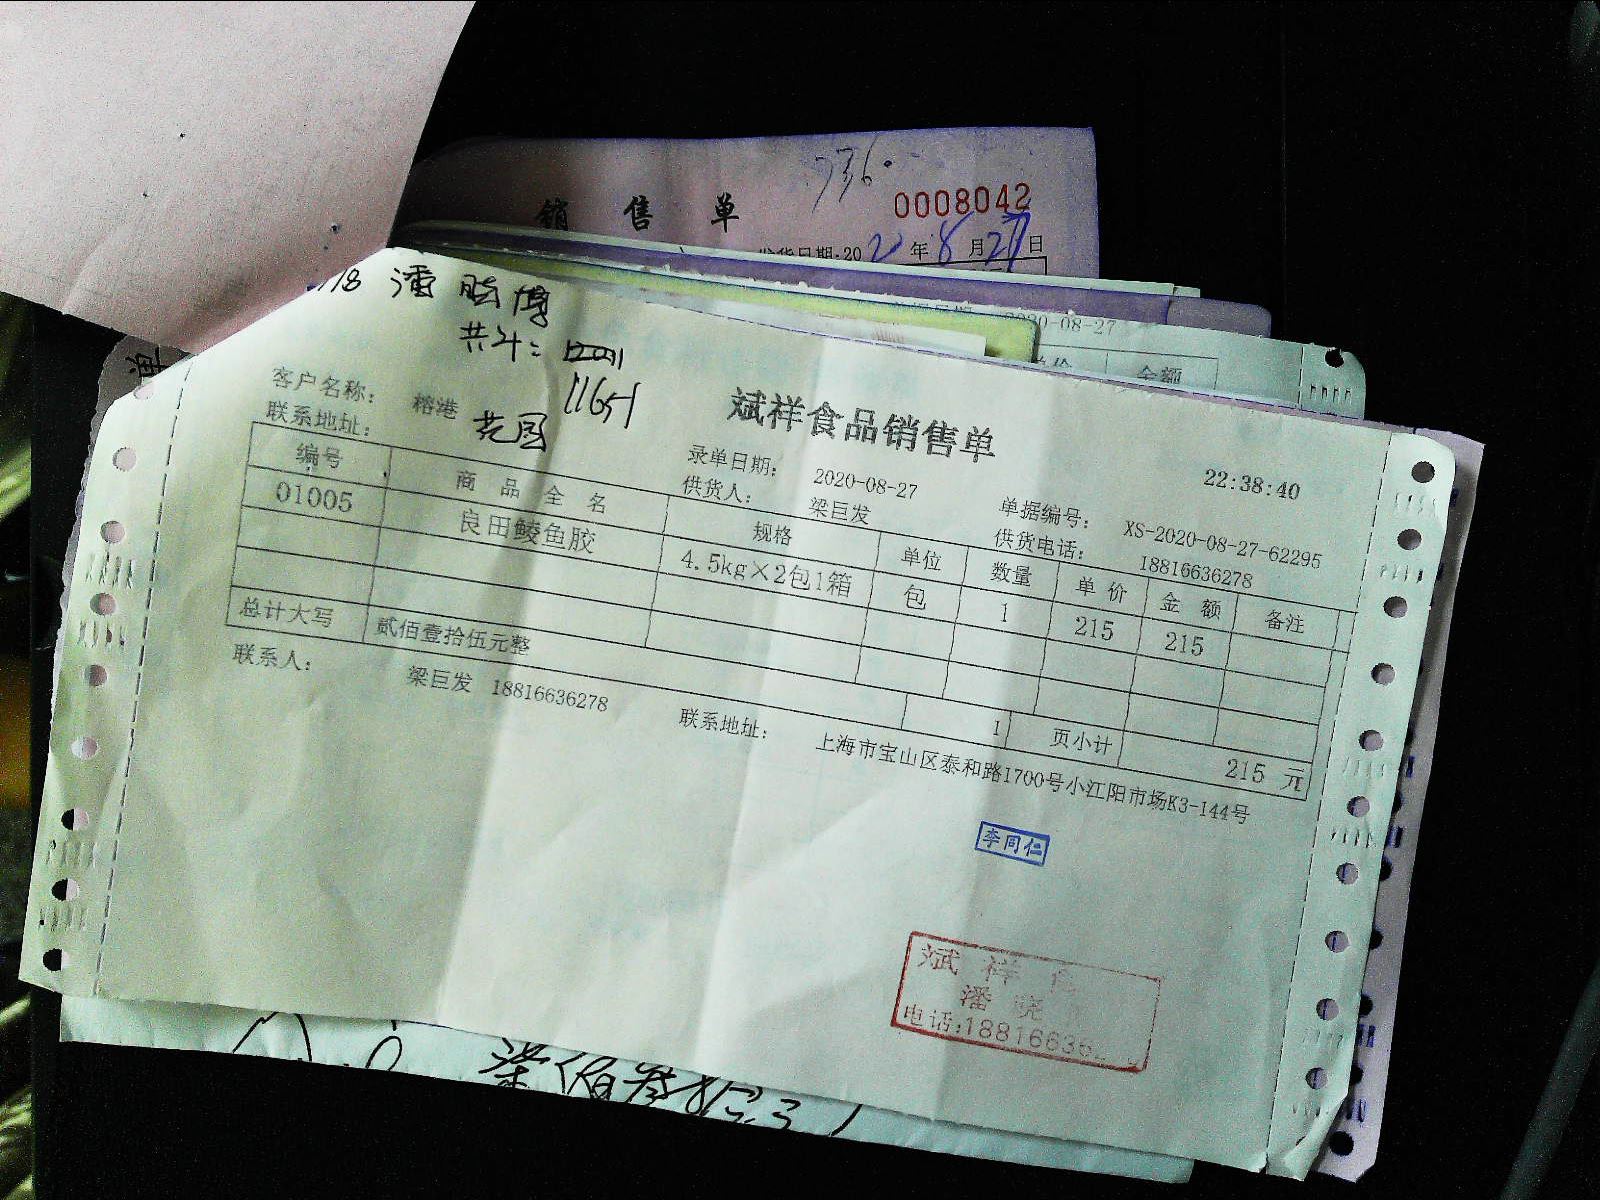 736.
销售单
0008042
发货日期:2020年8月27日
2020-08-27
单价 金额
118 潘
共计:
11651
斌祥食品销售单
22:38:40
客户名称: 榕港 花园
录单日期: 2020-08-27
单据编号: XS-2020-08-27-62295
联系地址:
供货人: 梁巨发
供货电话: 18816636278
编号 商品全名 规格 单位 数量 单价 金额 备注
01005 良田鲮鱼胶 4.5kg×2包1箱 包 1 215 215
总计大写 贰佰壹拾伍元整 1 页小计 215 元
联系人: 梁巨发 18816636278
联系地址: 上海市宝山区泰和路1700号小江阳市场K3-144号
李同仁
斌祥食
潘晓
电话:188166362